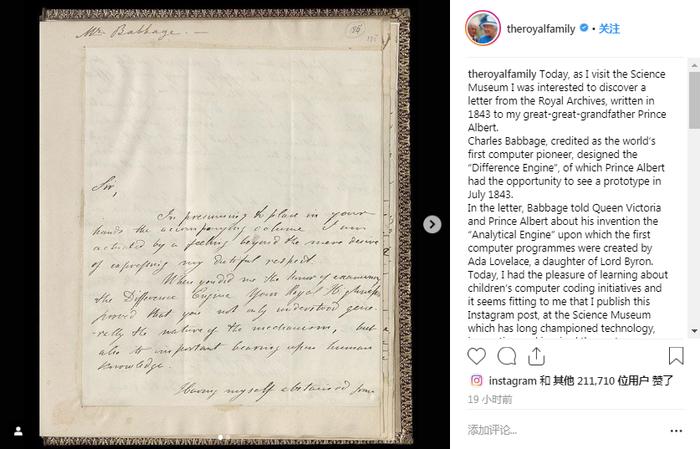 Mr Babbage. —
86
Sir,
In presuming to place in your
hands the accompanying volume I am
actuated by a feeling beyond the mere desire
of expressing my dutiful respect.
When you did me the honor of examining
the Difference Engine Your Royal Highness
proved that you not only understood gene-
rally the nature of the mechanism, but
also its important bearing upon human
knowledge.
Having myself abstained from
theroyalfamily • 关注
theroyalfamily Today, as I visit the Science
Museum I was interested to discover a
letter from the Royal Archives, written in
1843 to my great-great-grandfather Prince
Albert.
Charles Babbage, credited as the world’s
first computer pioneer, designed the
“Difference Engine”, of which Prince Albert
had the opportunity to see a prototype in
July 1843.
In the letter, Babbage told Queen Victoria
and Prince Albert about his invention the
“Analytical Engine” upon which the first
computer programmes were created by
Ada Lovelace, a daughter of Lord Byron.
Today, I had the pleasure of learning about
children’s computer coding initiatives and
it seems fitting to me that I publish this
Instagram post, at the Science Museum
which has long championed technology,
instagram 和 其他 211,710 位用户 赞了
19 小时前
添加评论...